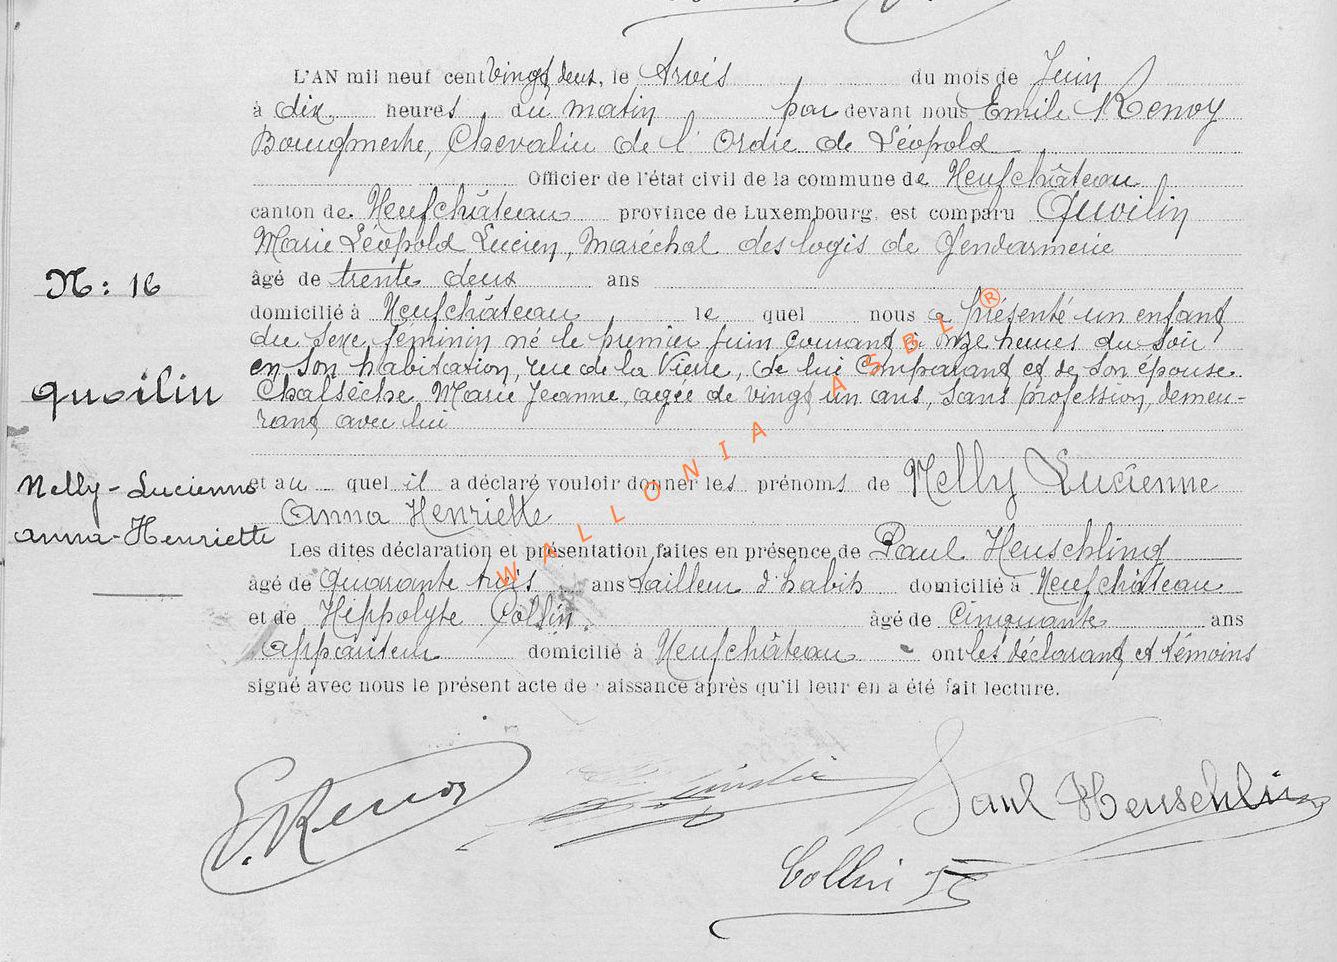 L'AN mil neuf cent vingt deux, le trois du mois de Juin
à dix heures du matin par devant nous Emile Renoy
Bourgmestre, Chevalier de l'Ordre de Léopold
Officier de l'état civil de la commune de Neufchâteau
canton de Neufchâteau province de Luxembourg, est comparu Quoilin
Marie Léopold Lucien, Maréchal des logis de Gendarmerie
N: 16
âgé de trente deux ans
domicilié à Neufchâteau le quel nous a présenté un enfant
du sexe féminin né le premier Juin courant à onze heures du soir
en son habitation, rue de la Vierre, de lui Comparant et de son épouse
quoilin
Chalsèche Marie Jeanne, agée de vingt un ans, sans profession, demeu-
rant avec lui
Nelly-Lucienne
et au quel il a déclaré vouloir donner les prénoms de Nelly Lucienne
Anna Henriette
anna-Henriette
Les dites déclaration et présentation faites en présence de Paul Heuschling
âgé de quarante trois ans tailleur d'habits domicilié à Neufchâteau
et de Hippolyte Collin âgé de cinquante ans
appariteur domicilié à Neufchâteau ont les déclarant et témoins
signé avec nous le présent acte de naissance après qu'il leur en a été fait lecture.
WALLONIA ASBL ®
E. Renoy
Paul Heuschling
Collin H